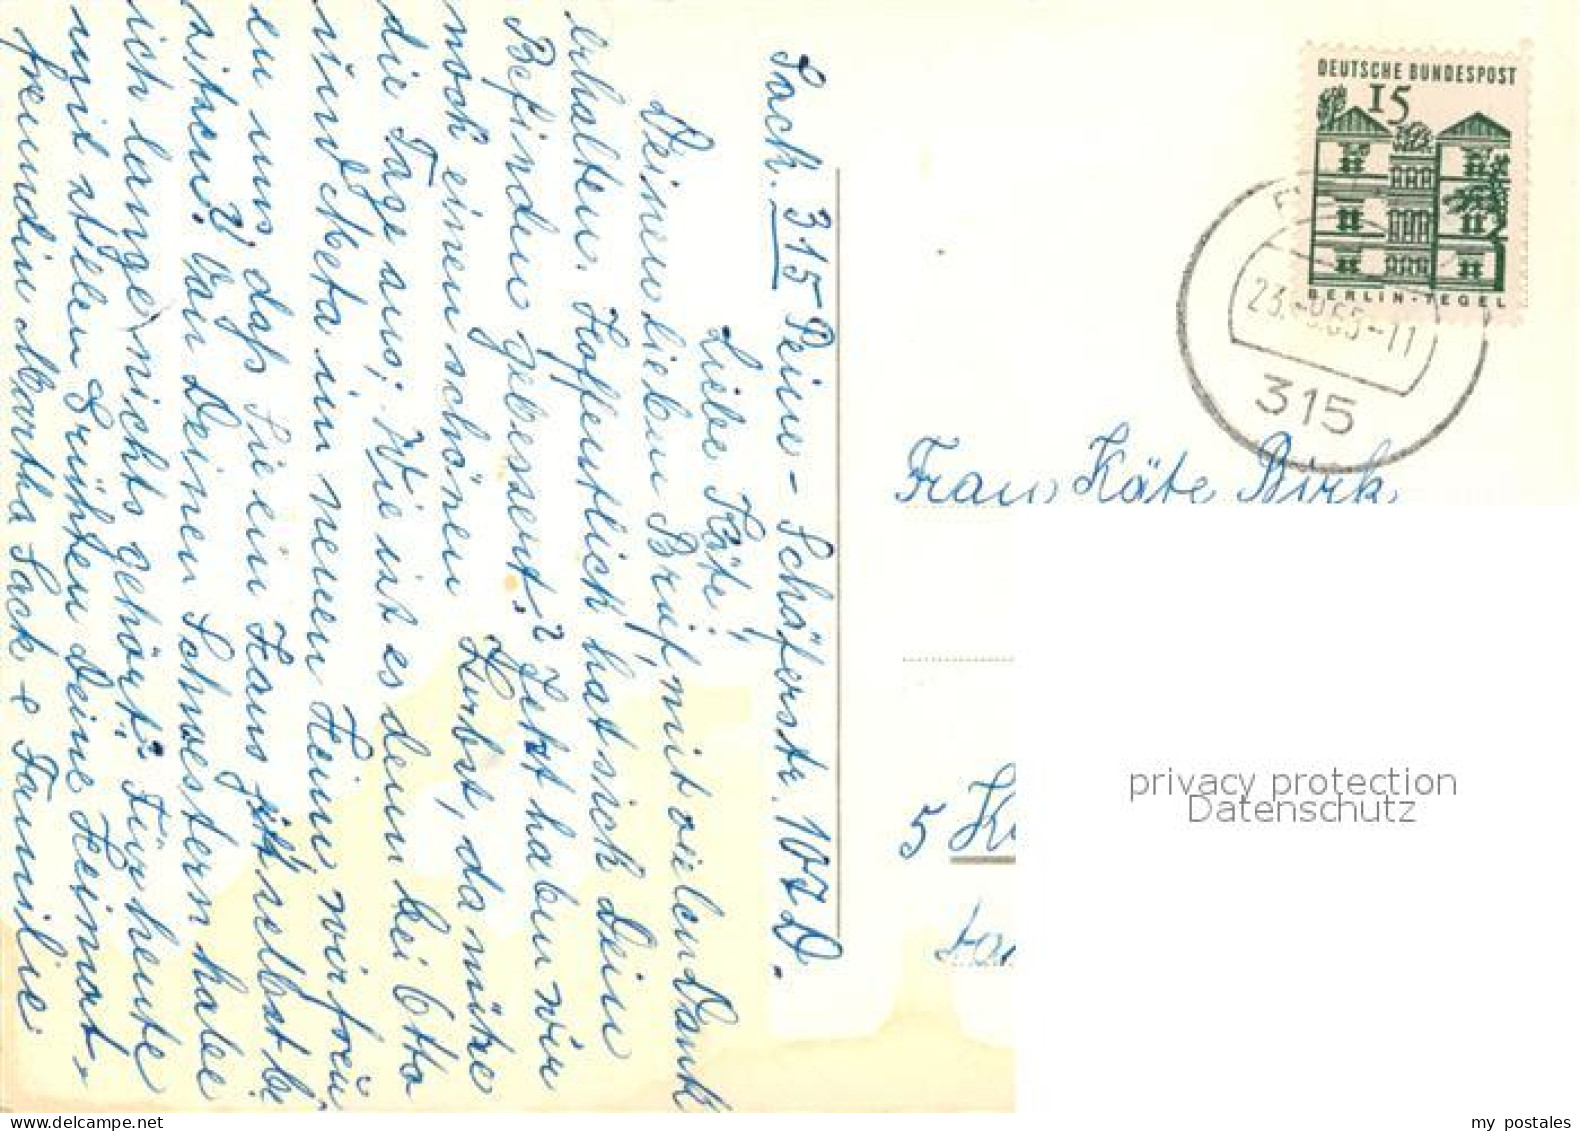 Sack. 315 Peine - Schäferstr. 107 D.
Liebe Käte!
Deinen lieben Brief, mit vielen Dank
erhalten. Hoffentlich hat sich Dein
Befinden gebessert? Jetzt haben wir
noch einen schönen Herbst, da nütze
die Tage aus; Wie ist es denn bei Otto
und Meta im neuen Heim wir freu
en uns, daß Sie ein Haus jetzt selbst be
sitzen! Von Deinen Schwestern habe
ich lange nichts gehört? Für heute
mit vielen Grüßen Deine Heimat-
freundin Martha Sack & Familie
DEUTSCHE BUNDESPOST
15
BERLIN-TEGEL
315
Frau Käte Birk
5
privacy protection
Datenschutz
my postales